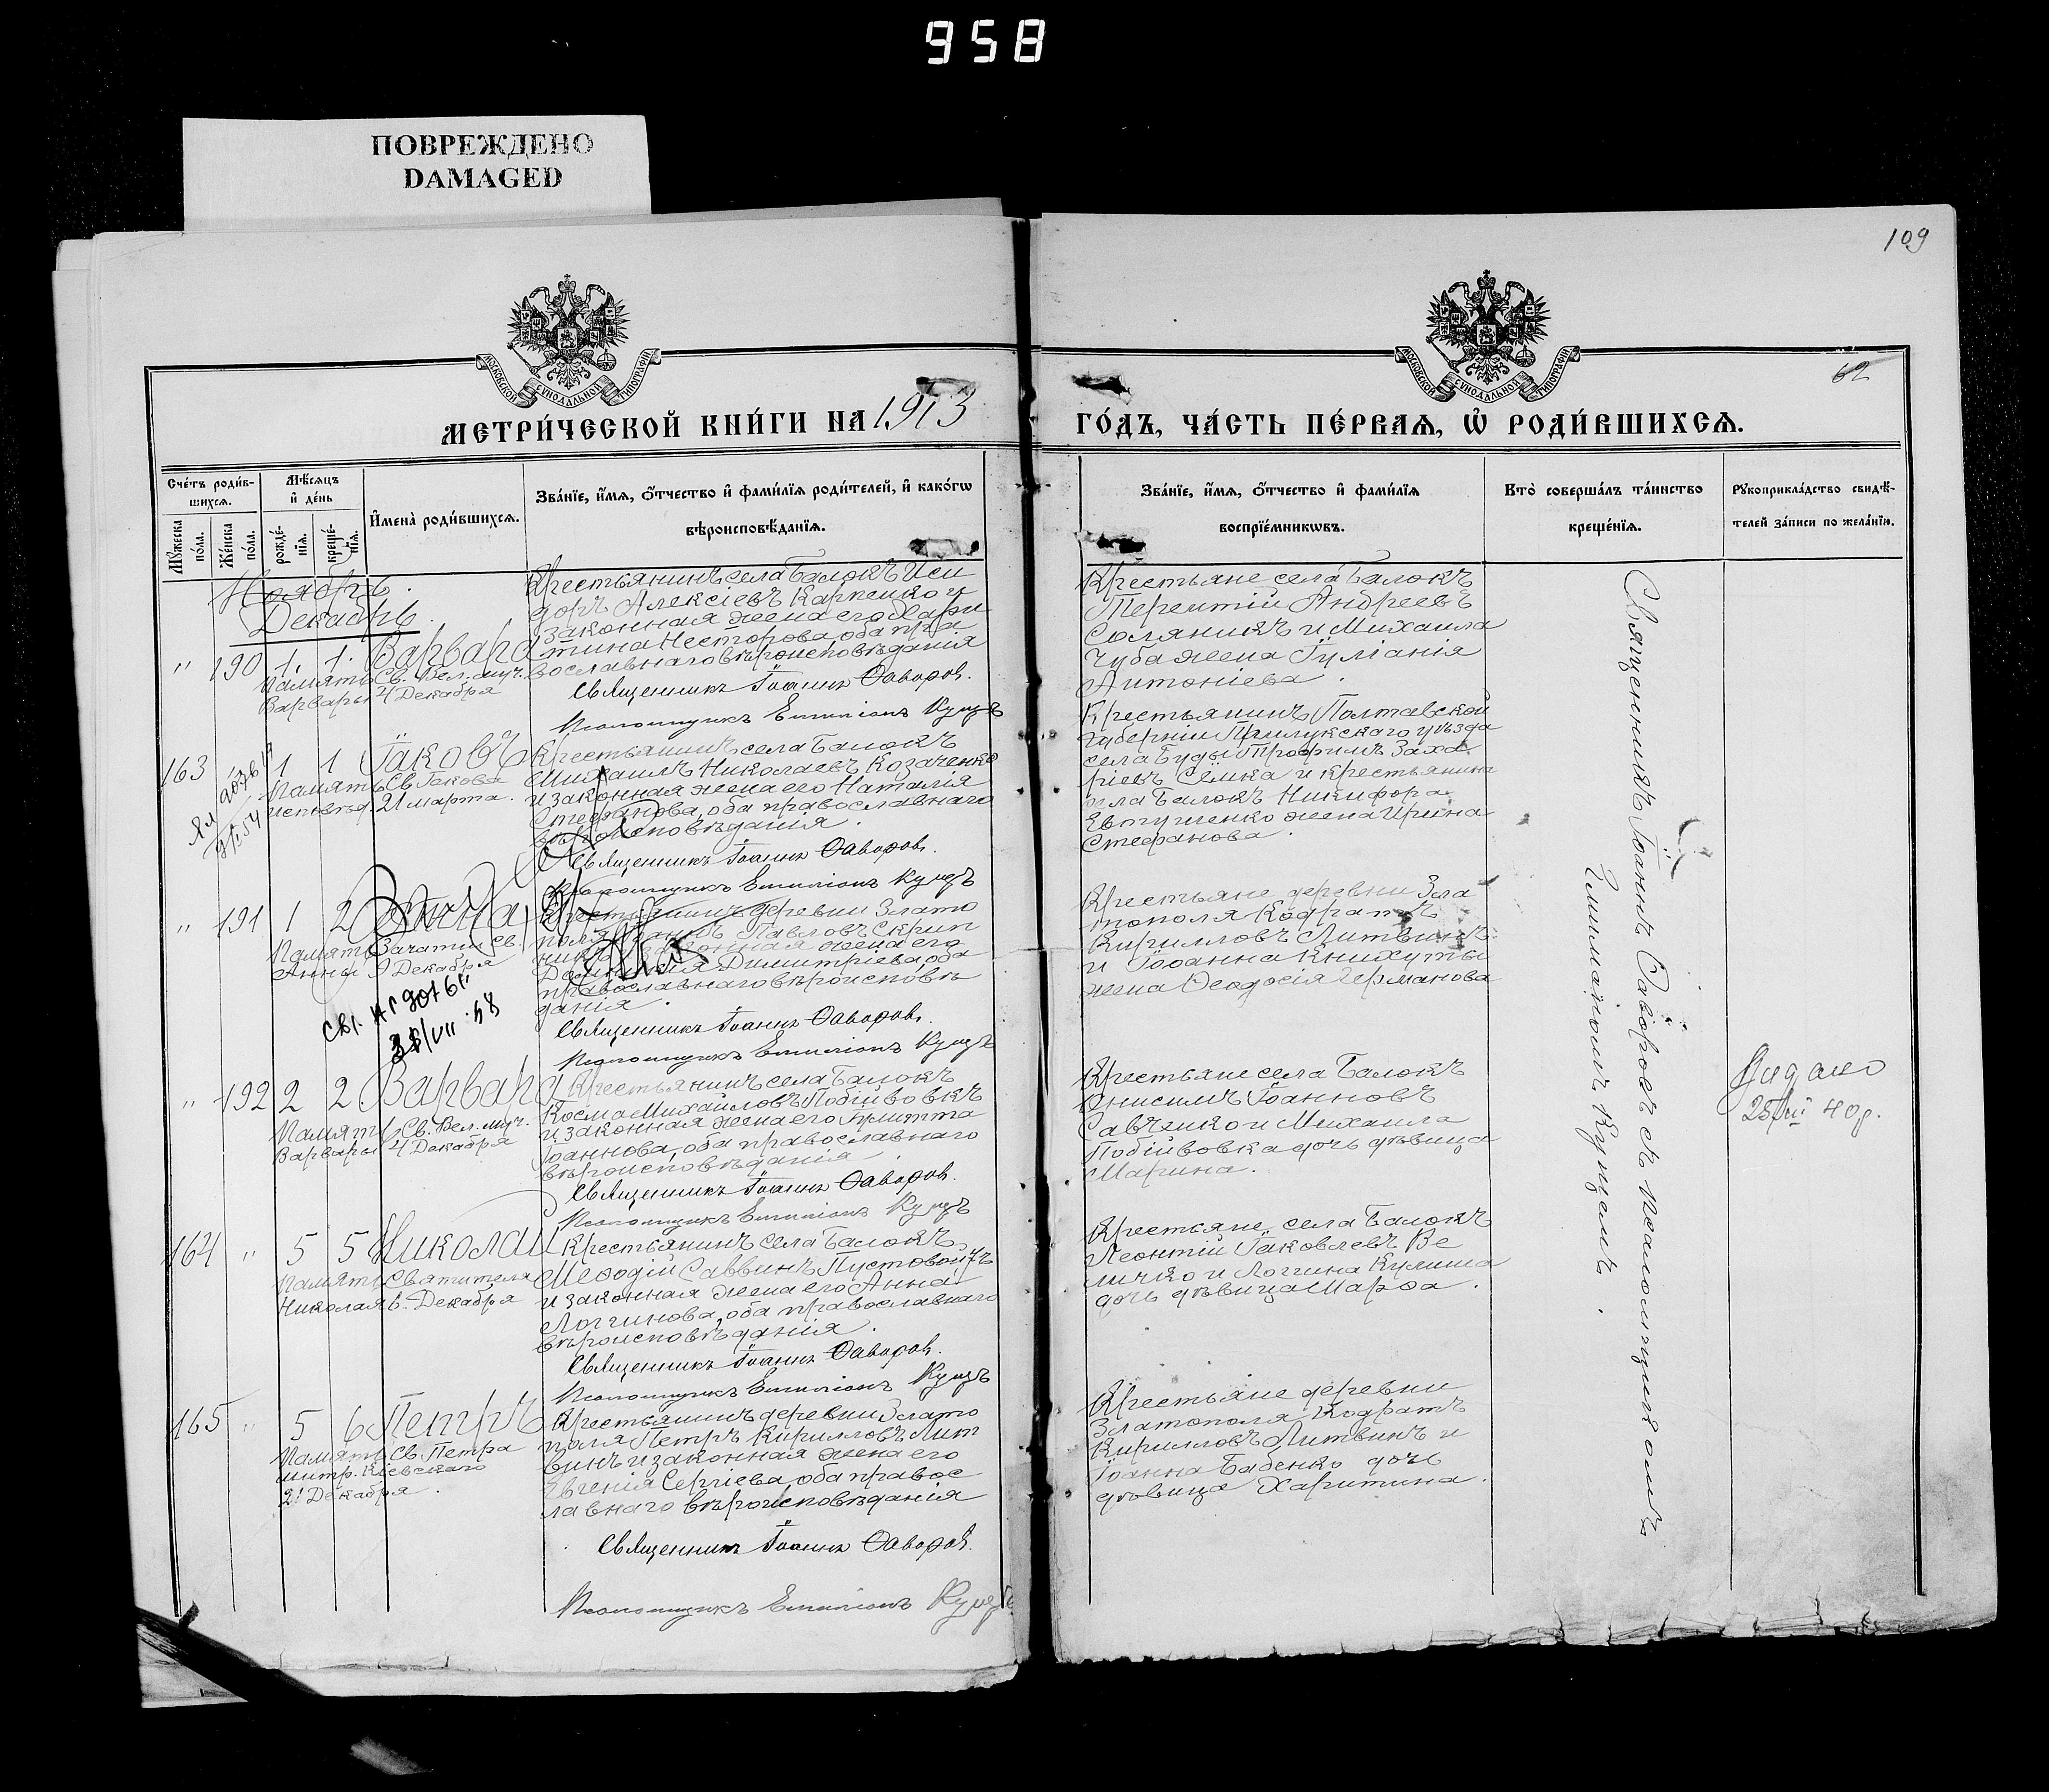 958
ПОВРЕЖДЕНО
DAMAGED
109
62
МОСКОВСКОЙ СѴНОДАЛЬНОЙ ТИПОГРАФІИ
МОСКОВСКОЙ СѴНОДАЛЬНОЙ ТИПОГРАФІИ
МЕТРИ́ЧЕСКОЙ КНИ́ГИ НА 1913
ГО́ДЪ, ЧА́СТЬ ПЕ́РВАѦ, Ѿ РОДИ́ВШИХСѦ.
Сче́тъ роди́в-
шихсѧ.
Мꙋжеска по́ла.
Же́нска по́ла.
Мѣ́сѧцъ
и҆ де́нь
рожде́-
нїѧ.
креще́-
нїѧ.
И҆мена̀ роди́вшихсѧ.
Зва́нїе, и҆́мѧ, ѻ҆́тчество и҆ фами́лїѧ роди́телей, и҆ како́гѡ
вѣроисповѣ́данїѧ.
Зва́нїе, и҆́мѧ, ѻ҆́тчество и҆ фами́лїѧ
воспрїе́мникѡвъ.
Кто̀ соверша́лъ та́инство
креще́нїѧ.
Рꙋкоприкла́дство свидѣ́-
телей за́писи по жела́нїю.
Ноябрь.
Декабрь
" 190 1. 1. Варвара
Память Св. Вел. муч.
Варвары 4 Декабря
Крестьянинъ села Балокъ Иси
доръ Алексіевъ Карпенко и
законная жена его Хари
тина Несторова, оба пра
вославнаго вѣроисповѣданія
Священникъ Іоаннъ Ѳаворов.
Псаломщикъ Емиліанъ Кущъ
Крестьяне села Балокъ
Терентій Андреевъ
Соляникъ и Михаила
Чуба жена Іуліанія
Антоніева.
163 1 1 Іаковъ
Память Св. Іакова
исповѣд. 21 марта.
Крестьянинъ села Балокъ
Михаилъ Николаевъ Козаченко
и законная жена его Наталія
Стефанова, оба православнаго
вѣроисповѣданія.
Священникъ Іоаннъ Ѳаворов.
Псаломщикъ Емиліанъ Кущъ
Крестьянинъ Полтавской
губерніи Прилукскаго уѣзда
села Буды Трофимъ Заха
ріевъ Сёмка и крестьянина
села Балокъ Никифора
Евтушенко жена Ирина
Стефанова.
" 191 1 2 Анна
Память Зачатія Св.
Анны 9 Декабря
Крестьянинъ деревни Злато
поля Іоаннъ Павловъ Скрип
никъ и законная жена его
Димитріева, оба
православнаго вѣроисповѣ
данія.
Священникъ Іоаннъ Ѳаворов.
Псаломщикъ Емиліанъ Кущъ
Крестьяне деревни Зла
тополя Кодратъ
Кирилловъ Литвинъ
и Іоанна Книхуты
жена Ѳеодосія Германова
" 192 2 2 Варвара
Память Св. Вел. муч.
Варвары 4 Декабря
Крестьянинъ села Балокъ
Косма Михайловъ Побійвовкъ
и законная жена его
Іоаннова, оба православнаго
вѣроисповѣданія.
Священникъ Іоаннъ Ѳаворов.
Псаломщикъ Емиліанъ Кущъ
Крестьяне села Балокъ
Онисимъ Іоанновъ
Савченко и Михаила
Побійвовка дочь дѣвица
Марина.
164 " 5 5 Николай
Память Святителя
Николая 6. Декабря
Крестьянинъ села Балокъ
Меѳодій Саввинъ Пустовойтъ
и законная жена его Анна
Логгинова, оба православнаго
вѣроисповѣданія.
Священникъ Іоаннъ Ѳаворов.
Псаломщикъ Емиліанъ Кущъ
Крестьяне села Балокъ
Леонтій Іаковлевъ Ве
личко и Логгина Кулиша
дочь дѣвица Марѳа.
165 " 5 6 Петръ
Память Св. Петра
митр. Кіевскаго
21 Декабря.
Крестьянинъ деревни Злато
поля Петръ Кирилловъ Лит
винъ и законная жена его
Евгенія Сергіева, оба правос
лавнаго вѣроисповѣданія
Священникъ Іоаннъ Ѳаворов.
Псаломщикъ Емиліанъ Кущъ
Крестьяне деревни
Златополя Кодратъ
Кирилловъ Литвинъ и
Іоанна Бабенко дочь
дѣвица Харитина.
Священникъ Іоаннъ Ѳаворовъ съ псаломщикомъ
Емиліаномъ Кущемъ.
Видано
40 р.